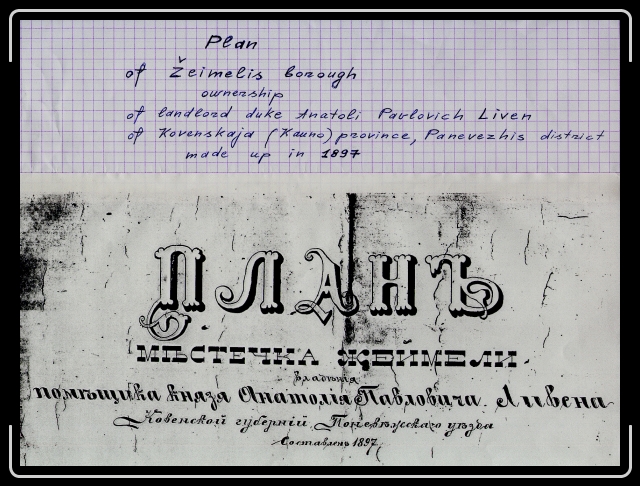 Plan
of Žeimelis borough
ownership
of landlord duke Anatoli Pavlovich Liven
of Kovenskaja (Kauno) province, Panevezhis district
made up in 1897
ПЛАНЪ
МѢСТЕЧКА ЖЕЙМЕЛИ
владѣнія
помѣщика князя Анатолія Павловича Ливена
Ковенской губерніи Поневѣжскаго уѣзда
Составленъ 1897